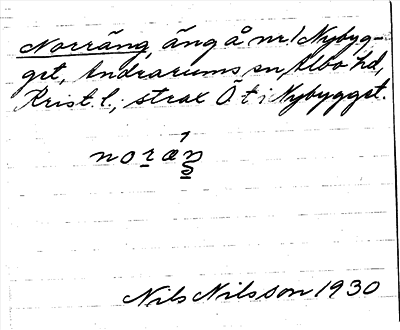 Norräng, äng å nr 1 Nybyg-
get, Andrarums sn, Albo hd,
Krist. l.; strax Ö t i Nybygget.
noræŋ
Nils Nilsson 1930